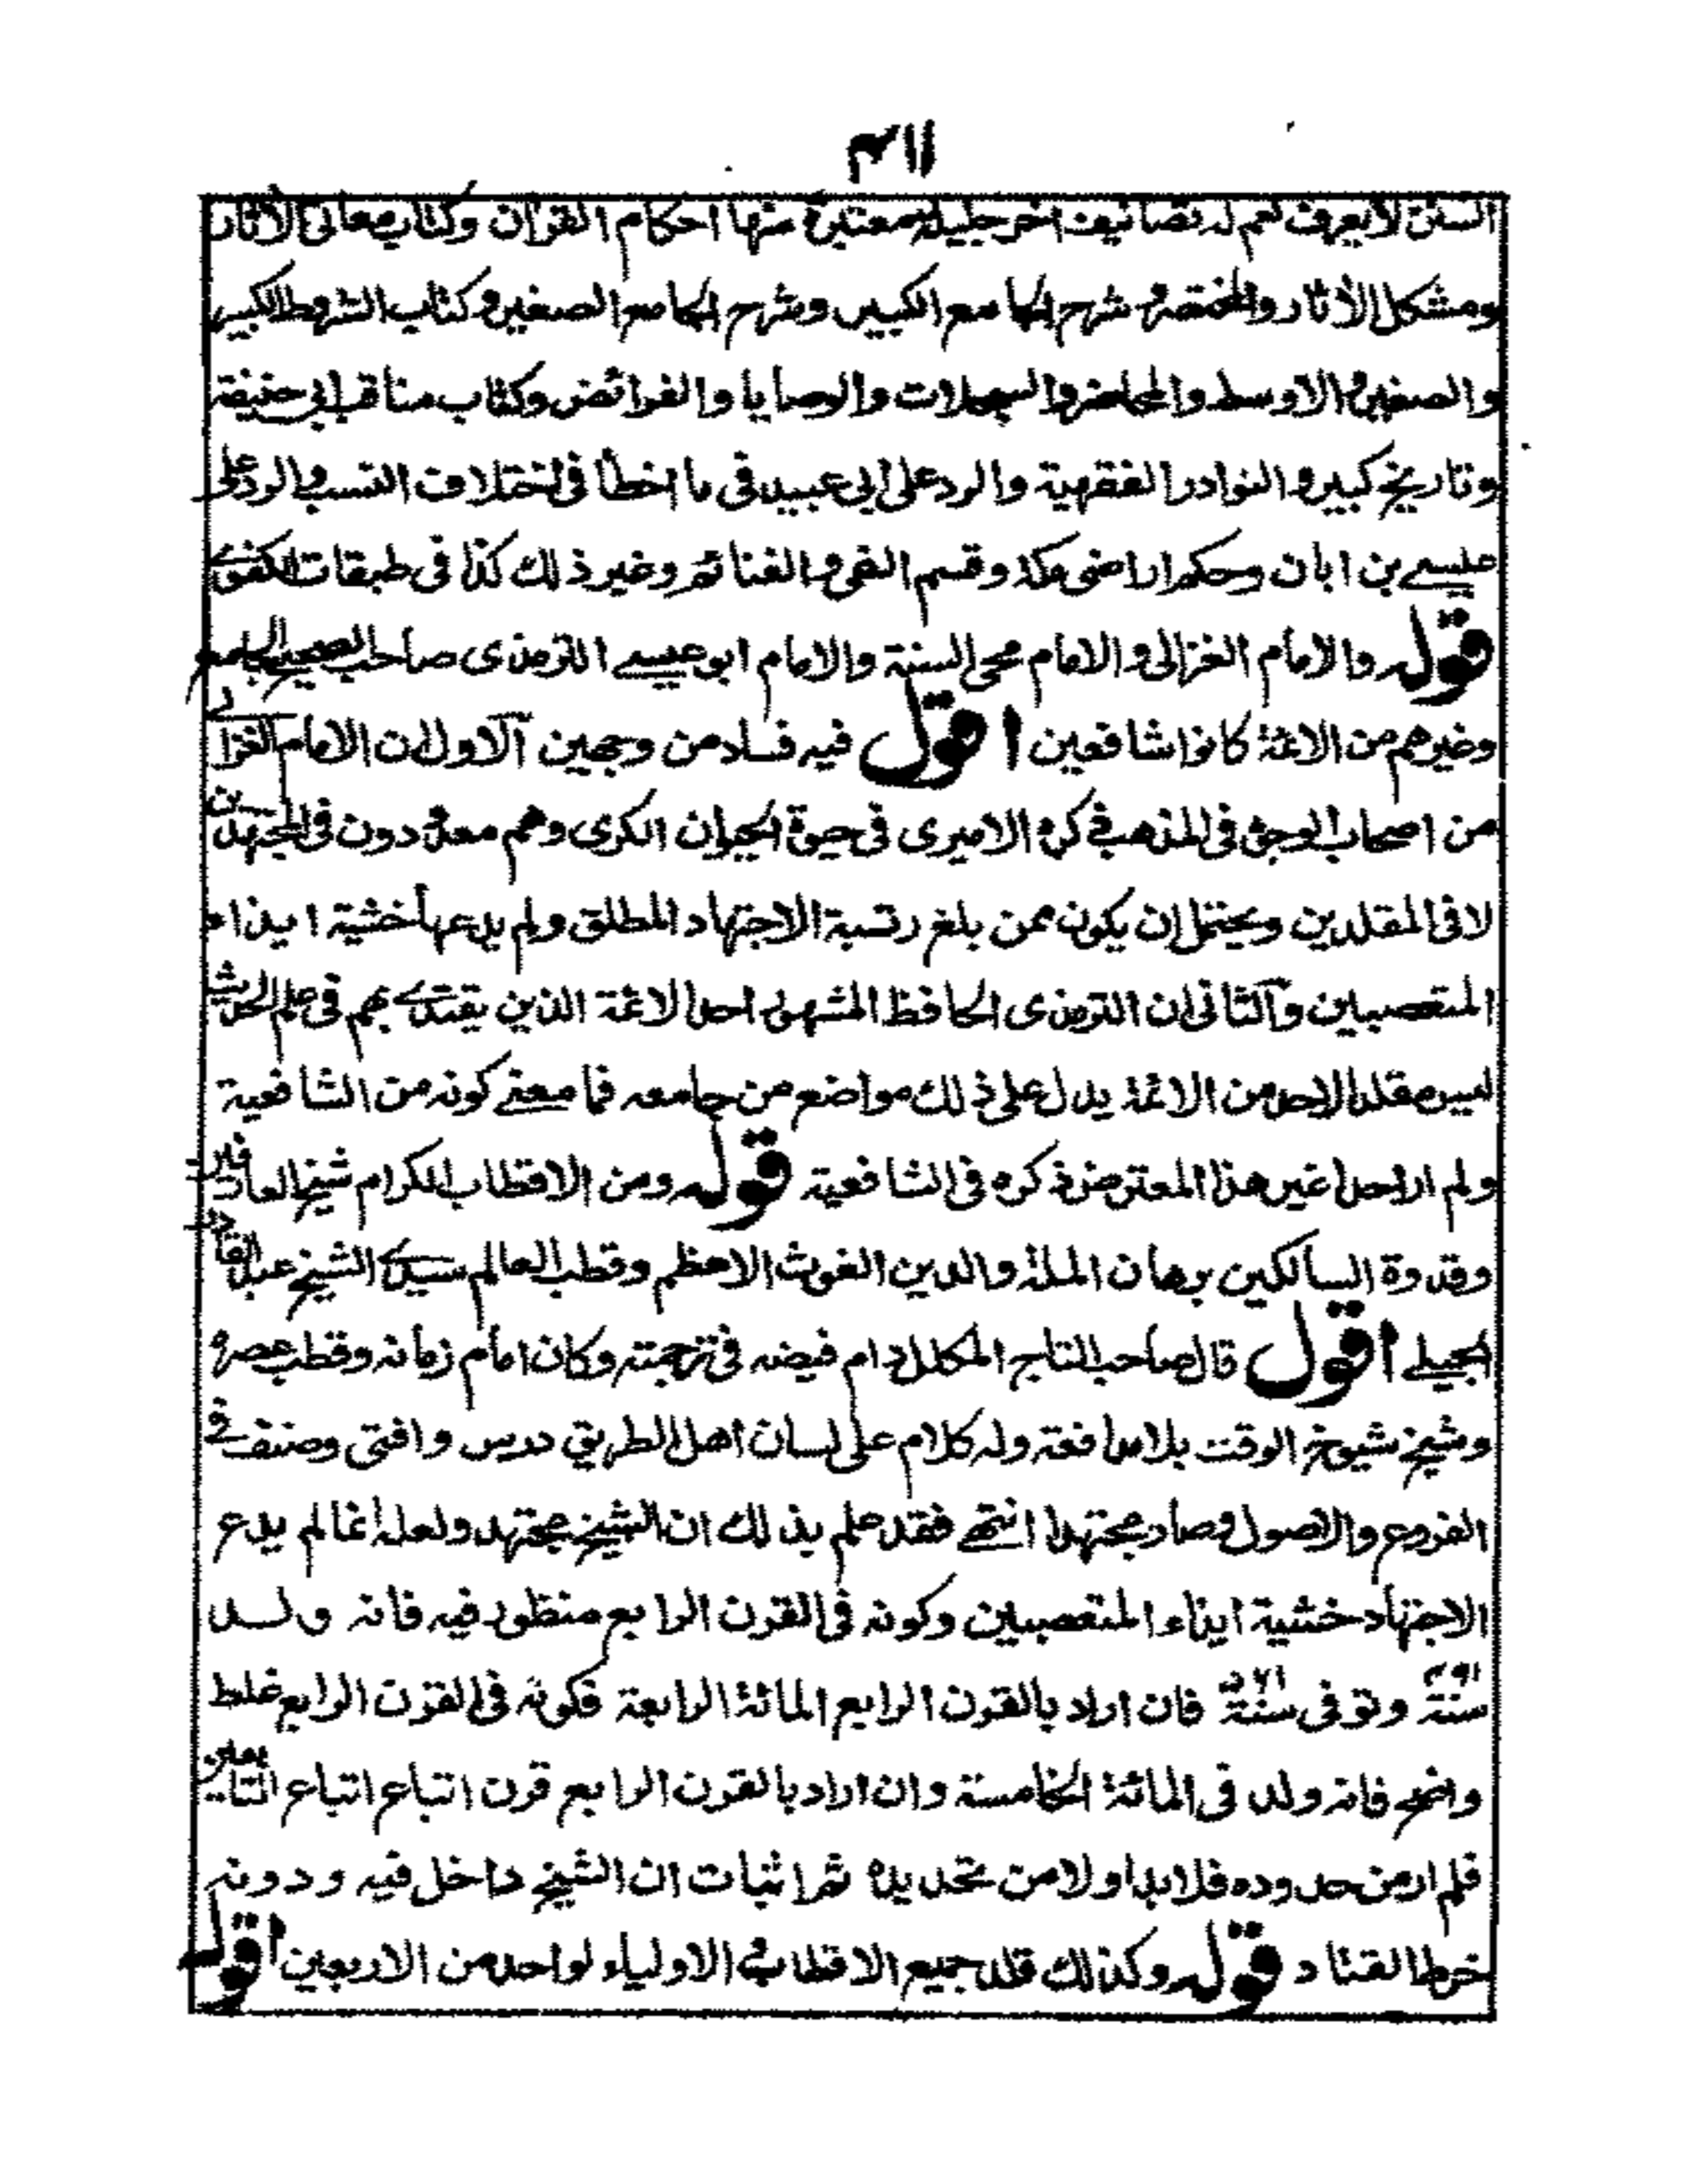 ٣١١
السنن لا يعرف نعم له تصانيف اخر جليلة معتبرة منها احكام القران وكتاب معانى الاثار
ومشكل الاثار والمختصر و شرح الجامع الكبير وشرح الجامع الصغير وكتاب الشروط الكبير
والصغير والاوسط والمحاضر والسجلات والوصايا والفرائض وكتاب مناقب ابى حنيفة
وتاريخ كبير والنوادر الفقهية والرد على ابى عبيد فى ما اخطأ فى اختلاف النسب والرد على
عيسے بن ابان وحكم اراضى مكة وقسم الفئ والغنائم وغير ذلك كذا فى طبقات الكفوے
قوله والامام الغزالى والامام محى السنة والامام ابو عيسے الترمذى صاحب الصحيح الجامع
وغيرهم من الائمة كانوا شافعين اقول فيه فساد من وجهين آلاول ان الامام الغزالے
من اصحاب الوجوه فى المذهب ذكره الدميرى فى حيوة الحيوان الكبرى وهم معدودون فى المجتهدين
لا فى المقلدين ويحتمل ان يكون ممن بلغ رتبة الاجتهاد المطلق ولم يدعها خشية ايذاء
المتعصبين وآلثانى ان الترمذى الحافظ المشهور احد الائمة الذين يقتدے بهم فى علم الحديث
ليس مقلدا لاحد من الائمة يدل على ذلك مواضع من جامعه فما معنے كونه من الشافعية
ولم ار احدا غير هذا المعترض ذكره فى الشافعية قوله ومن الاقطاب الكرام شيخ العارفين
وقدوة السالكين برهان الملة والدين الغوث الاعظم وقطب العالم سيدے الشيخ عبد القادر
الجيلے اقول قال صاحب التاج المكلل دام فيضه فى ترجمته وكان امام زمانه وقطب عصره
وشيخ شيوخ الوقت بلا مدافعة وله كلام على لسان اهل الطريق درس وافتى وصنف فے
الفروع والاصول وصار مجتهدا انتهے فقد علم بذلك ان الشيخ مجتهد ولعله انما لم يدع
الاجتهاد خشية ايذاء المتعصبين وكونه فى القرن الرابع منظور فيه فانه ولد
سنة وتوفى سنة فان اراد بالقرن الرابع المائة الرابعة فكونه فى القرن الرابع غلط
واضح فانه ولد فى المائة الخامسة وان اراد بالقرن الرابع قرن اتباع اتباع التابعين
فلم ار من حدوده فلا بد اولا من تحديده ثم اثبات ان الشيخ داخل فيه ودونه
خرط القتاد قوله وكذلك قلد جميع الاقطاب والاولياء لواحد من الاربعين اقول